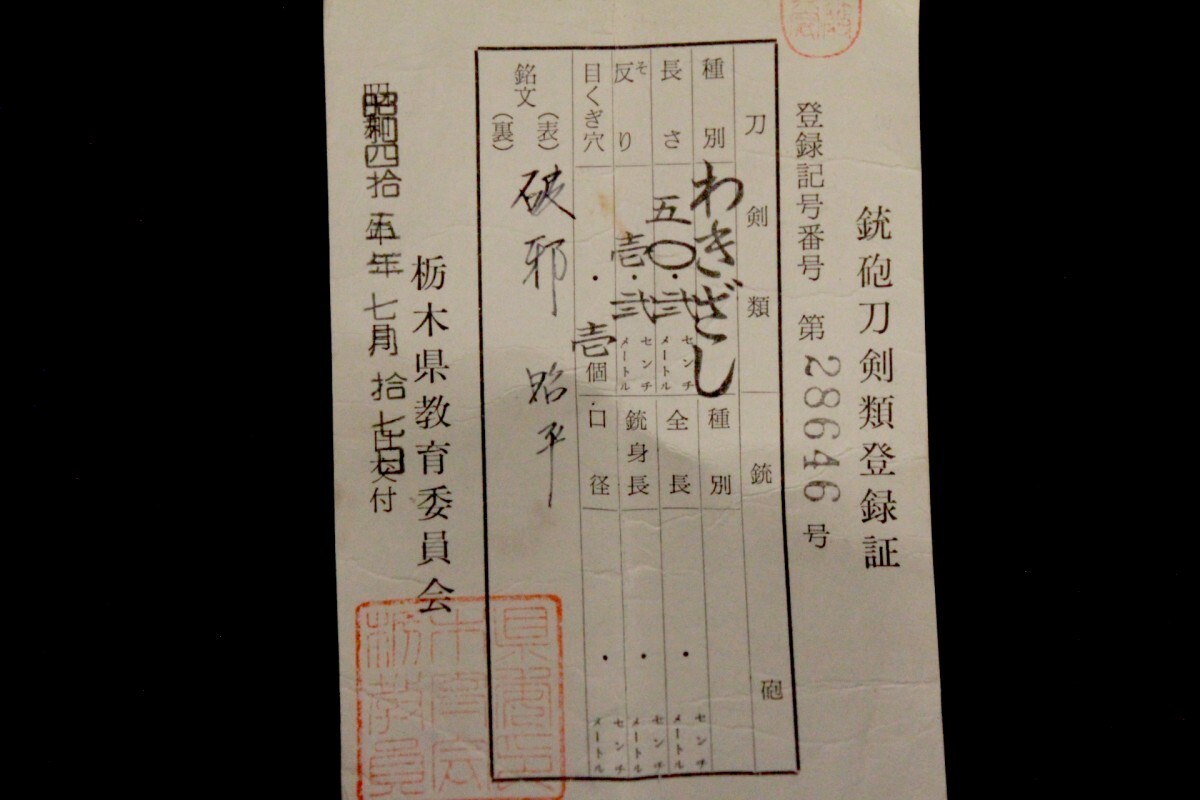 銃砲刀剣類登録証
登録記号番号 第28646号
刀剣類
種別 わきざし
長さ 五〇・弐 センチメートル
反り そ 壱・弐 センチメートル
目くぎ穴 壱個
銘文 (表) 破邪 昭平
(裏)
銃砲
種別
全長 ・ センチメートル
銃身長 ・ センチメートル
口径 ・ センチメートル
昭和四拾五年七月拾七日交付
栃木県教育委員会